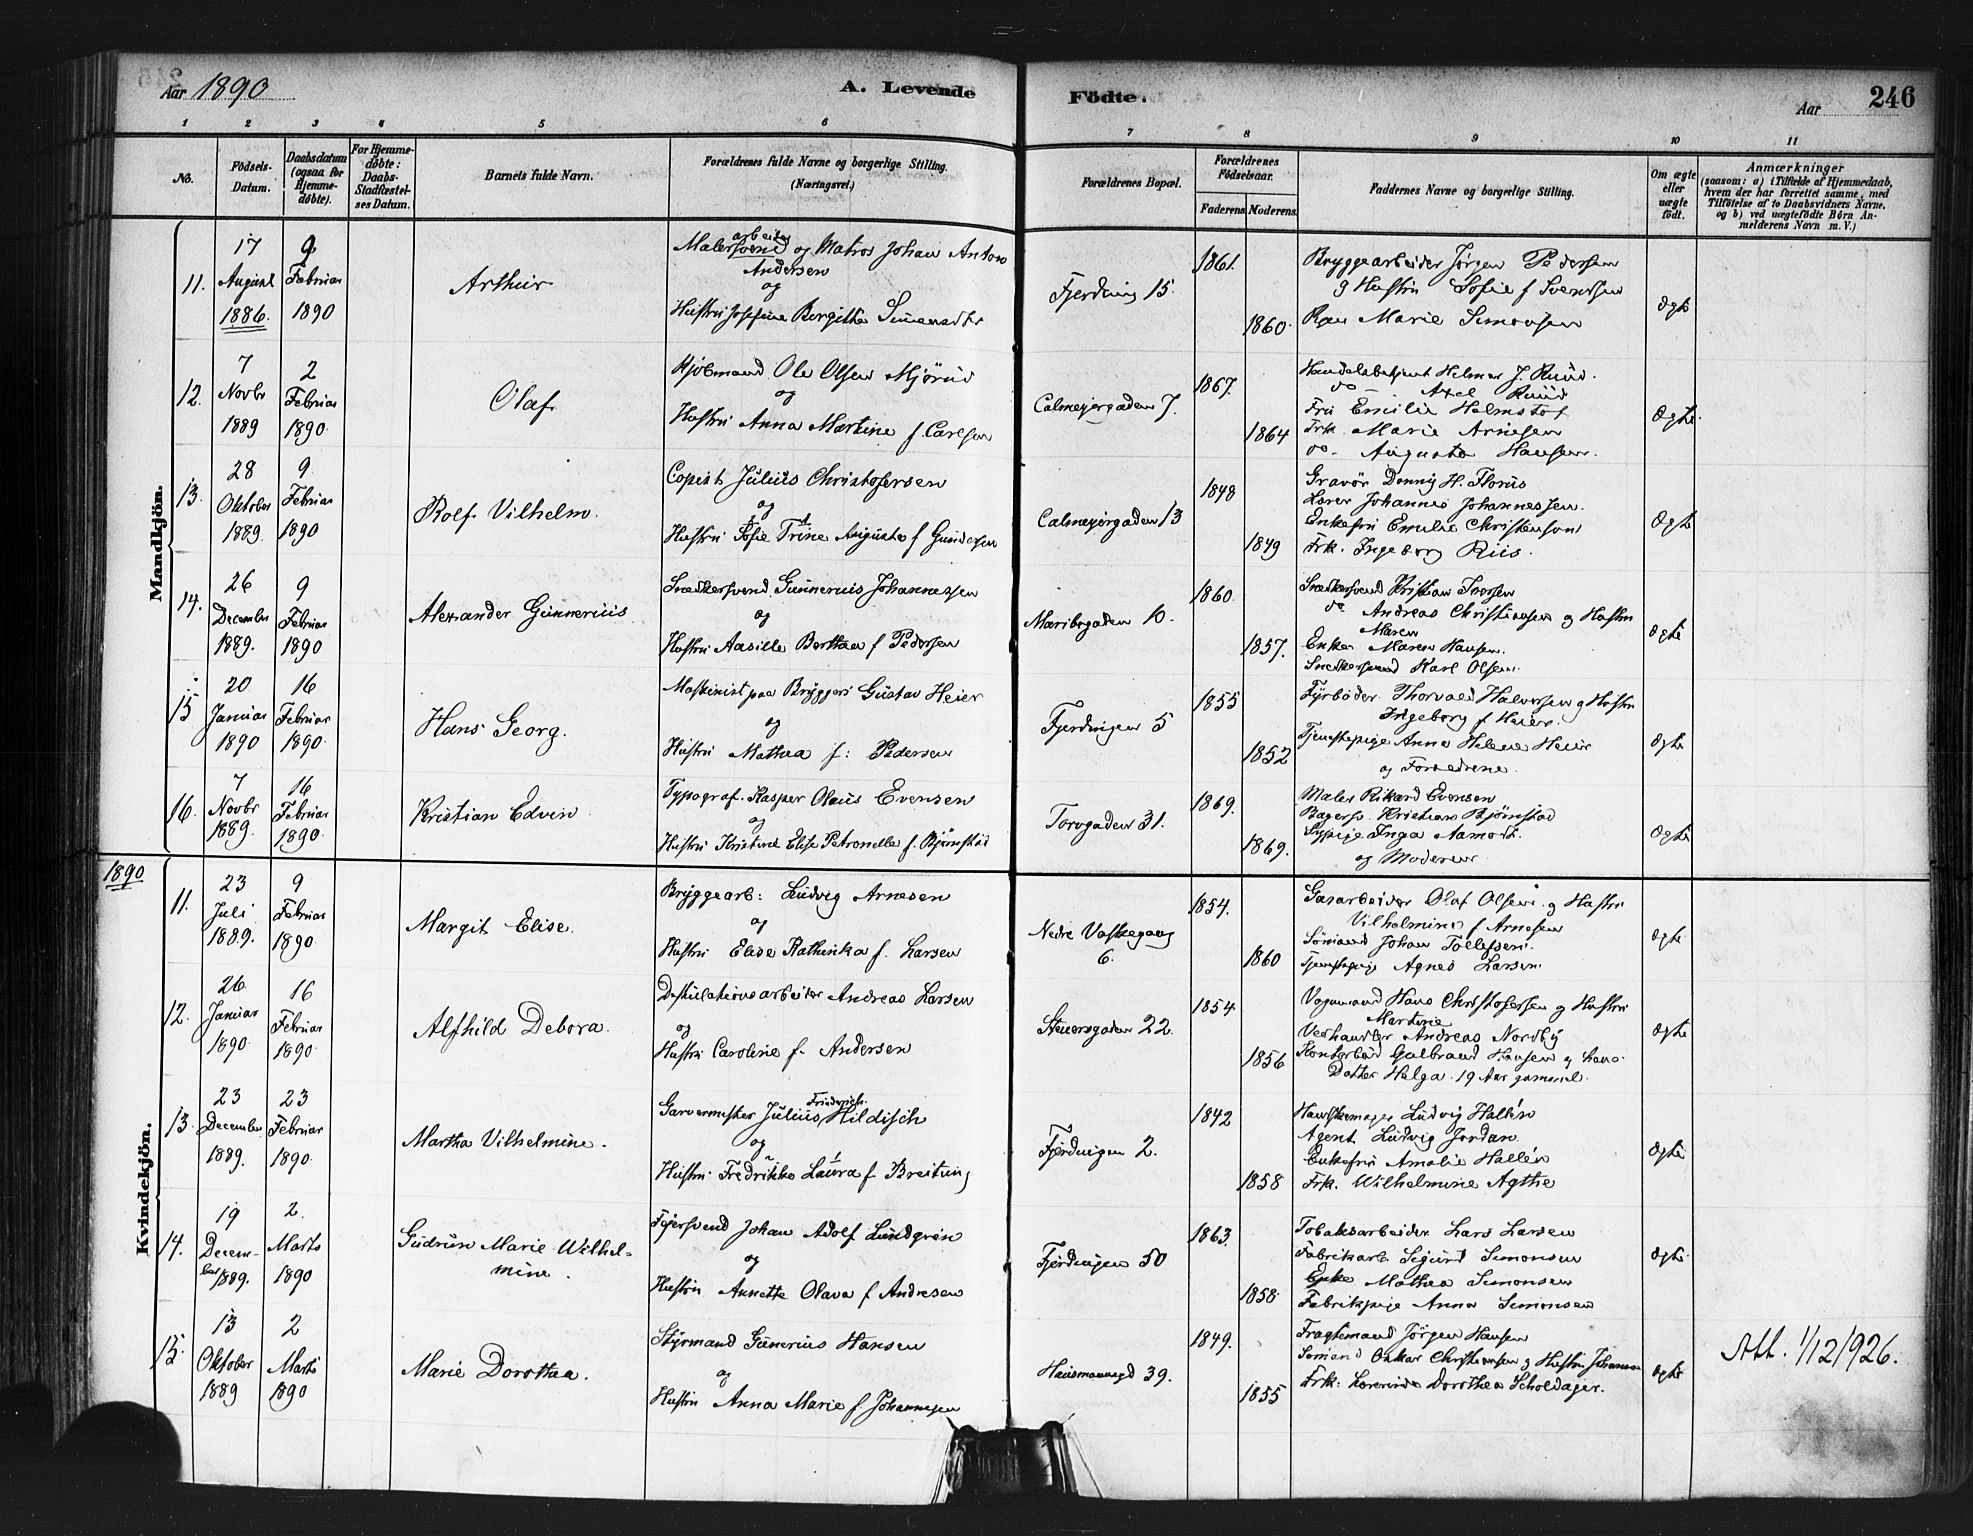 246
Aar 1890
A. Levende Födte.
Aar
1 2 3 4 5 6 7 8 9 10 11
No.
Födsels-Datum.
Daabsdatum (ogsaa for Hjemme-döbte).
For Hjemme-döbte: Daabs-Stadfæstel-ses Datum.
Barnets fulde Navn.
Forældrenes fulde Navne og borgerlige Stilling. (Næringsvei.)
Forældrenes Bopæl.
Forældrenes Födselsaar.
Faderens. Moderens.
Faddernes Navne og borgerlige Stilling.
Om ægte eller uægte födt.
Anmærkninger
(saasom: a) i Tilfælde af Hjemmedaab, hvem der har forrettet samme, med Tilföielse af to Daabsvidners Navne, og b) ved uægtefödte Börn An-melderens Navn m. V.)
Mandkjön.
11. 17 August 1886. 9 Februar 1890
Arthur
arbeider
Malersvend og Matros Johan Anton
Andersen
og
Hustru Josefine Birgitte
Fjerding 15.
1861. 1860.
Bryggearbeider Jørgen Pedersen
og Hustru Sofie f Svendsen
Marie Simonsen
Ægte
12. 7 Novbr 1889 2 Februar 1890.
Olaf.
Kjøbmand Ole Olsen Mjörud
og
Hustru Anna Martine f. Carlsen
Calmeyergaden 7.
1867. 1864
Handelsbetjent Helmer J. Ruud.
do Axel Ruud
Fru Emilie
Frk. Marie Arnesen
do. Augusta Hansen.
Ægte.
13. 28 Oktober 1889. 9 Februar 1890
Rolf Vilhelm.
Copist Julius Christofersen
og
Hustru Sofie Trine Augusta f Gundersen
Calmeyergaden 13
1848 1849
Gravör H. Florus
Lærer Johannes Johannessen.
Enkefru Emilie Christensen
Frk. Ingeborg Riis.
Ægte
14. 26 December 1889. 9 Februar 1890
Alexander Gunnerius
Snedkersvend Gunnerius Johannessen
og
Hustru Aasille Berthea f Pedersen
Maribogaden 10.
1860. 1857.
Snedkersvend Kristian Iversen
do Andreas Christiansen og Hustru
Maren
Enke Maren Hansen.
Snedkersvend Karl Olsen.
Ægte
15 20 Januar 1890 16 Februar 1890.
Hans Georg.
Maskinist paa Bryggeri Gustav Heier
og
Hustru Mathea f: Pedersen
Fjerdingen 5
1855 1852
Fyrbøder Thorvald Halvorsen og Hustru
Ingeborg f Heier.
Tjenestepige Anna Helene Heier
og Forældrene.
Ægte
16. 7 Novbr 1889. 16 Februar 1890.
Kristian Edvin
Typograf. Kasper Olaus Evensen
og
Hustru Kristine Elise Petronelle f. Bjørnstad
Torvgaden 31.
1869. 1869.
Maler Rikard Evensen
Bagersv. Kristian Bjørnstad
Sypige Inga Aamodt.
og Moderen.
Ægte
1890
Kvindekjön.
11. 23 Juli 1889. 9 Februar 1890
Margit Elise.
Bryggearb: Ludvig Arnesen
og
Hustru Elise Kathinka f. Larsen
Nedre Vaskegang
6.
1854. 1860
Gasarbeider Olaf Olsen og Hustru
Vilhelmine f Arnesen
Sømand Johan Tollefsen.
Tjenestepige Agnes Larsen.
Ægte
12. 26. Januar 1890. 16 Februar 1890.
Alfhild Debora.
Destillationsarbeider Andreas Larsen
og
Hustru Caroline f. Andersen
Steensgaden 22.
1854. 1856
Vognmand Hans Christofersen og Hustru
Martine
Vedhandler Andreas Nordby
Kontorbud Gulbrand Hansen og hans
Datter Helga 19 Aar gammel.
Ægte
13. 23 December 1889. 23 Februar 1890.
Martha Vilhelmine.
Friedrich
Garvermester Julius Hildisch
og
Hustru Fredrikke Laura f Breitung
Fjerdingen 2.
1842 1858
Handskemager Ludvig Hallén
Agent Ludvig Jordan
Enkefru Amalie Hallén
Frk. Wilhelmine Agthe
Ægte
14. 19 Decem-ber 1889. 2. Marts 1890
Gudrun Marie Wilhel-
mine.
Feiersvend Johan Adolf Lundgrén
og
Hustru Annette Olava f Andresen
Fjerdingen 50
1863. 1858.
Tobaksarbeider Lars Larsen
Fabrikarb Sigurd Simonsen
Enke Mathea Simonsen
Fabrikpige Anna Simonsen
Ægte
15. 13 Oktober 1889 2 Marts 1890
Marie Dorothea.
Styrmand Gunerius Hansen
og
Hustru Anna Marie f. Johannesen
Hausmannsgd 39.
1849. 1855
Fragtemand Jørgen Hansen
Sømand Oskar Christensen og Hustru Johanne
Frk: Lærerinde Dorothea Scholdager.
Ægte
Att. 1/12/926.